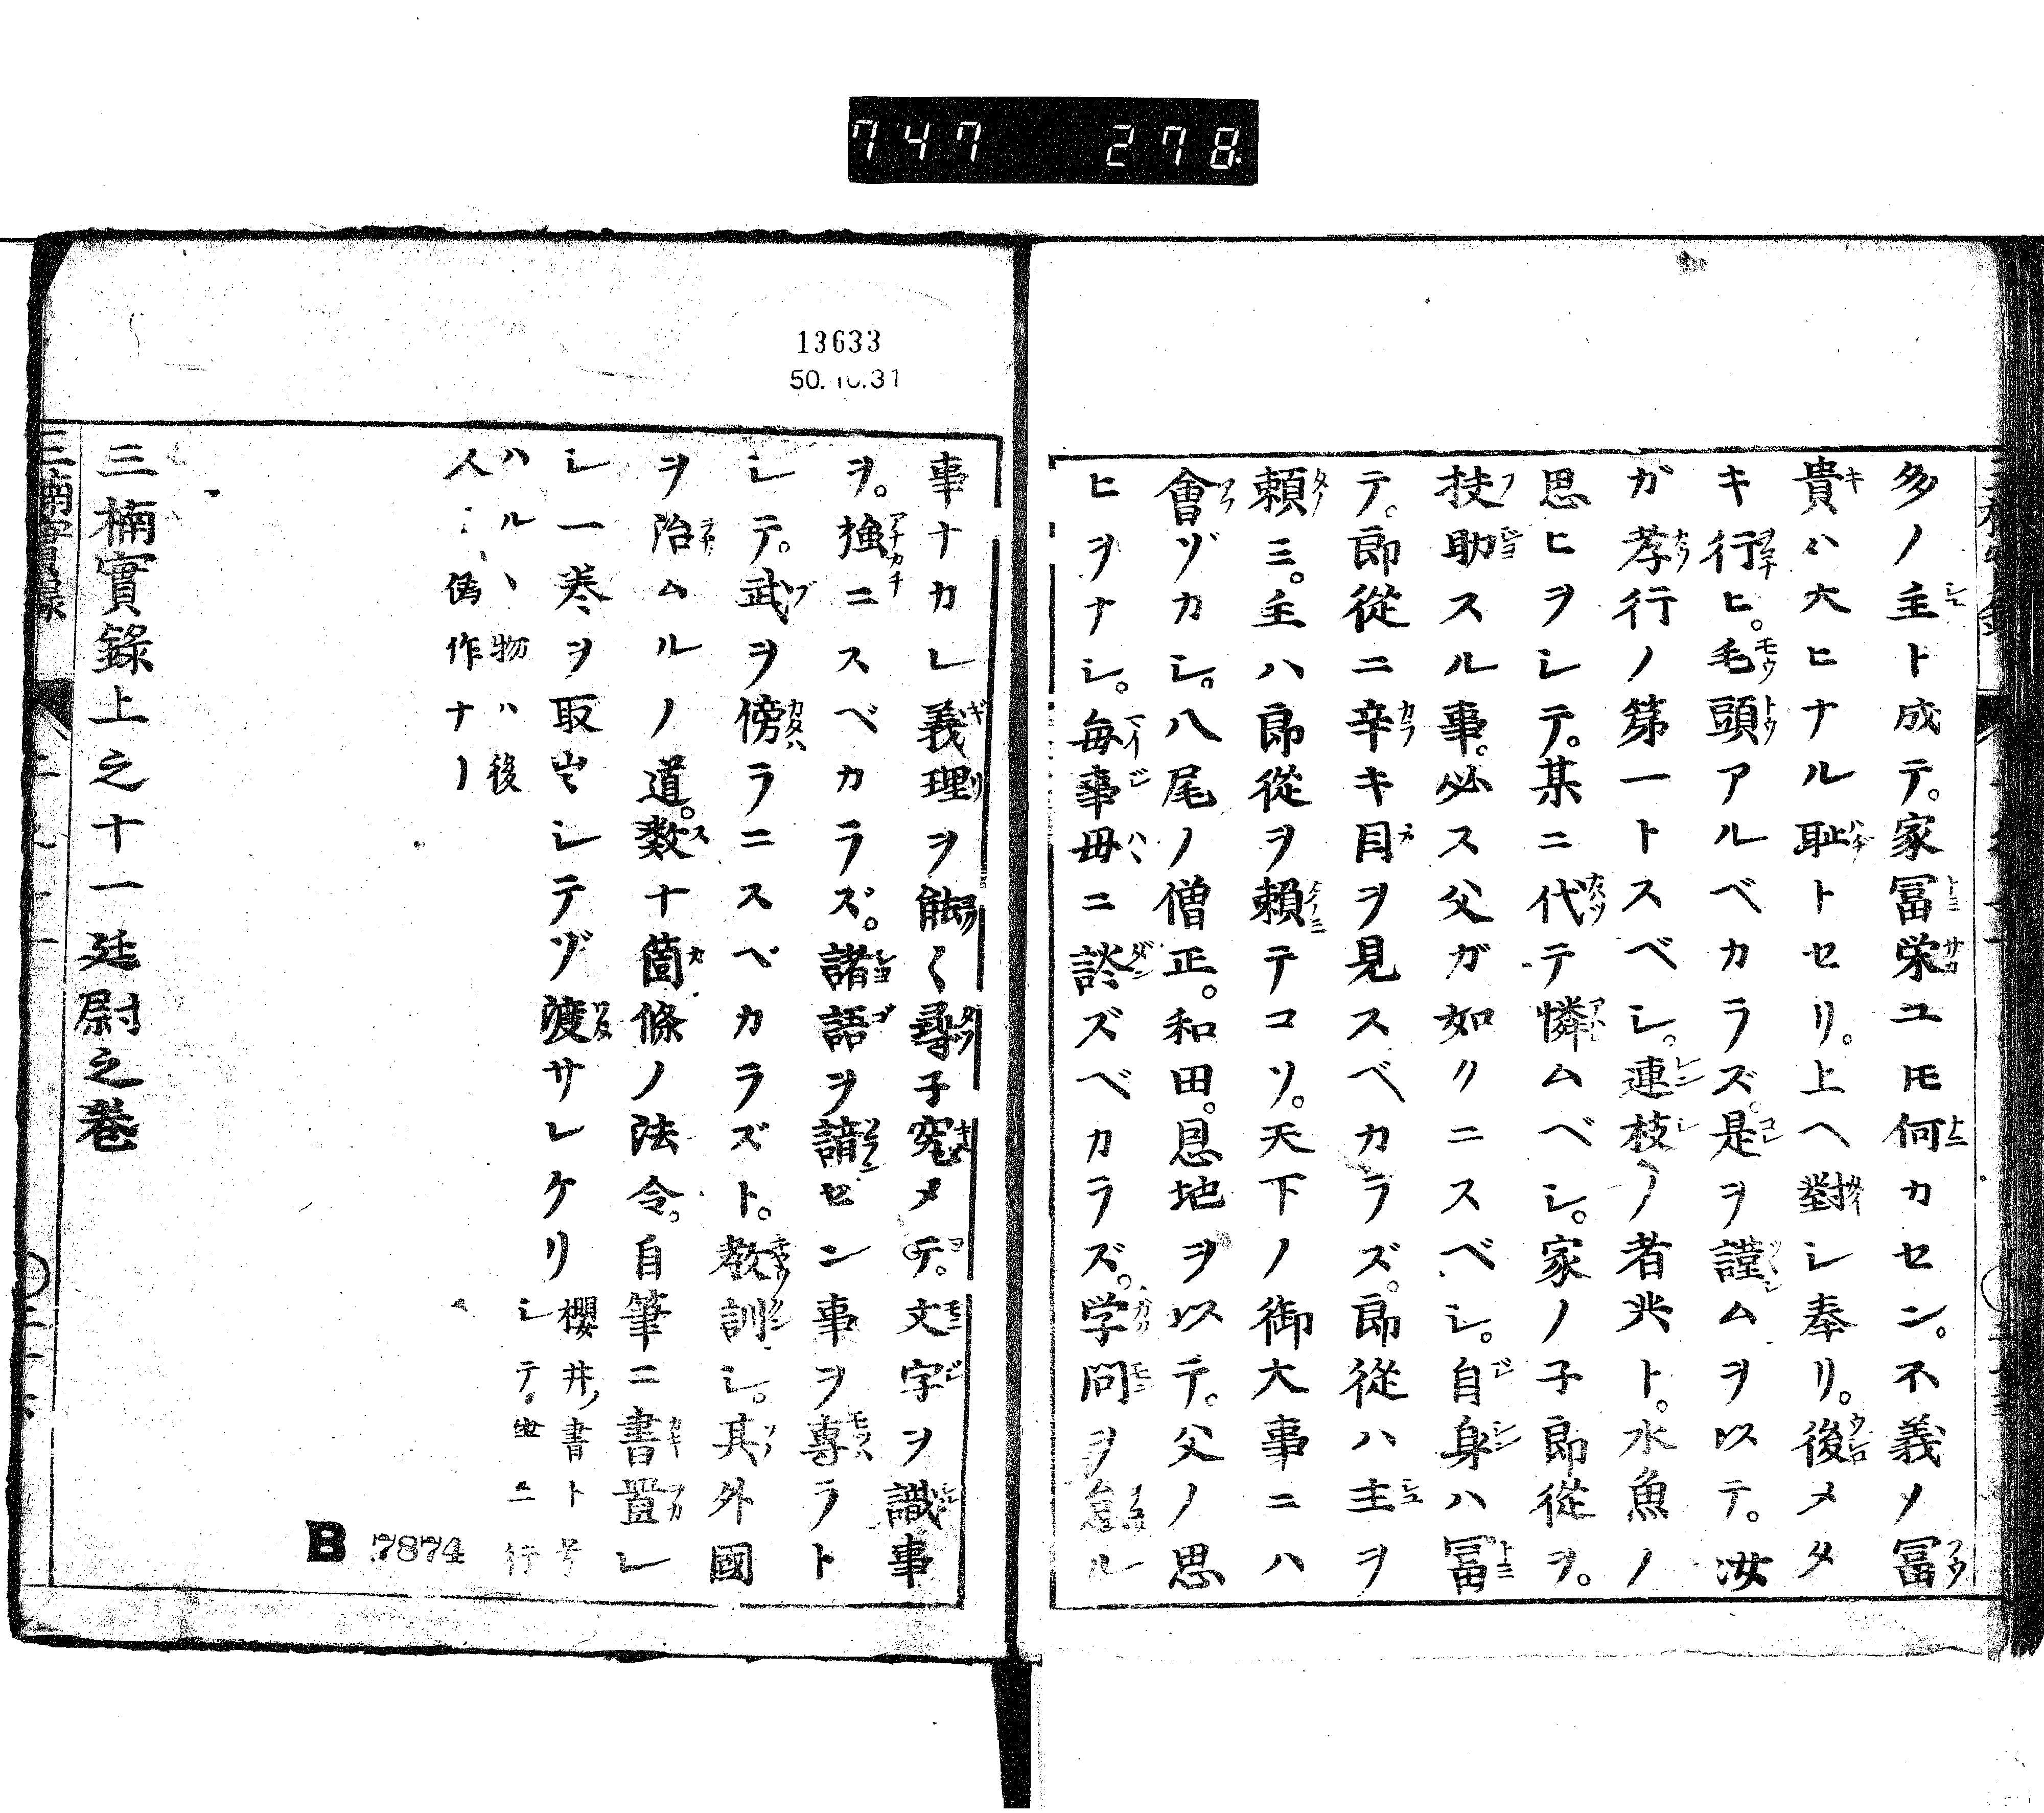 747 278
多ノ主ト成テ。家冨栄ユ𪜈何カセン。不義ノ冨
貴ハ大ヒナル耻トセリ。上ヘ對シ奉リ。後メタ
キ行ヒ。毛頭アルベカラズ。是ヲ謹ムヲ以テ。汝
ガ孝行ノ第一トスベシ。連枝ノ者共ト。水魚ノ
思ヒヲシテ。某ニ代テ憐ムベシ。家ノ子郎従ヲ。
扶助スル事。必ス父ガ如クニスベシ。自身ハ冨
テ。郎従ニ辛キ目ヲ見スベカラズ。郎従ハ主ヲ
頼ミ。主ハ郎従ヲ頼テコソ。天下ノ御大事ニハ
會ヅカシ。八尾ノ僧正。和田。恩地ヲ以テ。父ノ思
ヒヲナシ。毎事毋ニ談ズベカラズ。学問ヲ怠ル
13633
50.10.31
事ナカレ義理ヲ能く尋子究メテ。文字ヲ識事
ヲ。強ニスベカラズ。諸語ヲ諳セン事ヲ専ラト
シテ。武ヲ傍ラニスベカラズト。教訓シ。其外國
ヲ治ムルノ道。数十箇條ノ法令。自筆ニ書置レ
シ一巻ヲ取出シテゾ渡サレケリ
櫻井ノ書ト号
シテ。世ニ行
ハルヽ物ハ後
人ノ偽作ナリ
三楠實錄上之十一廷尉之巻
B 7874